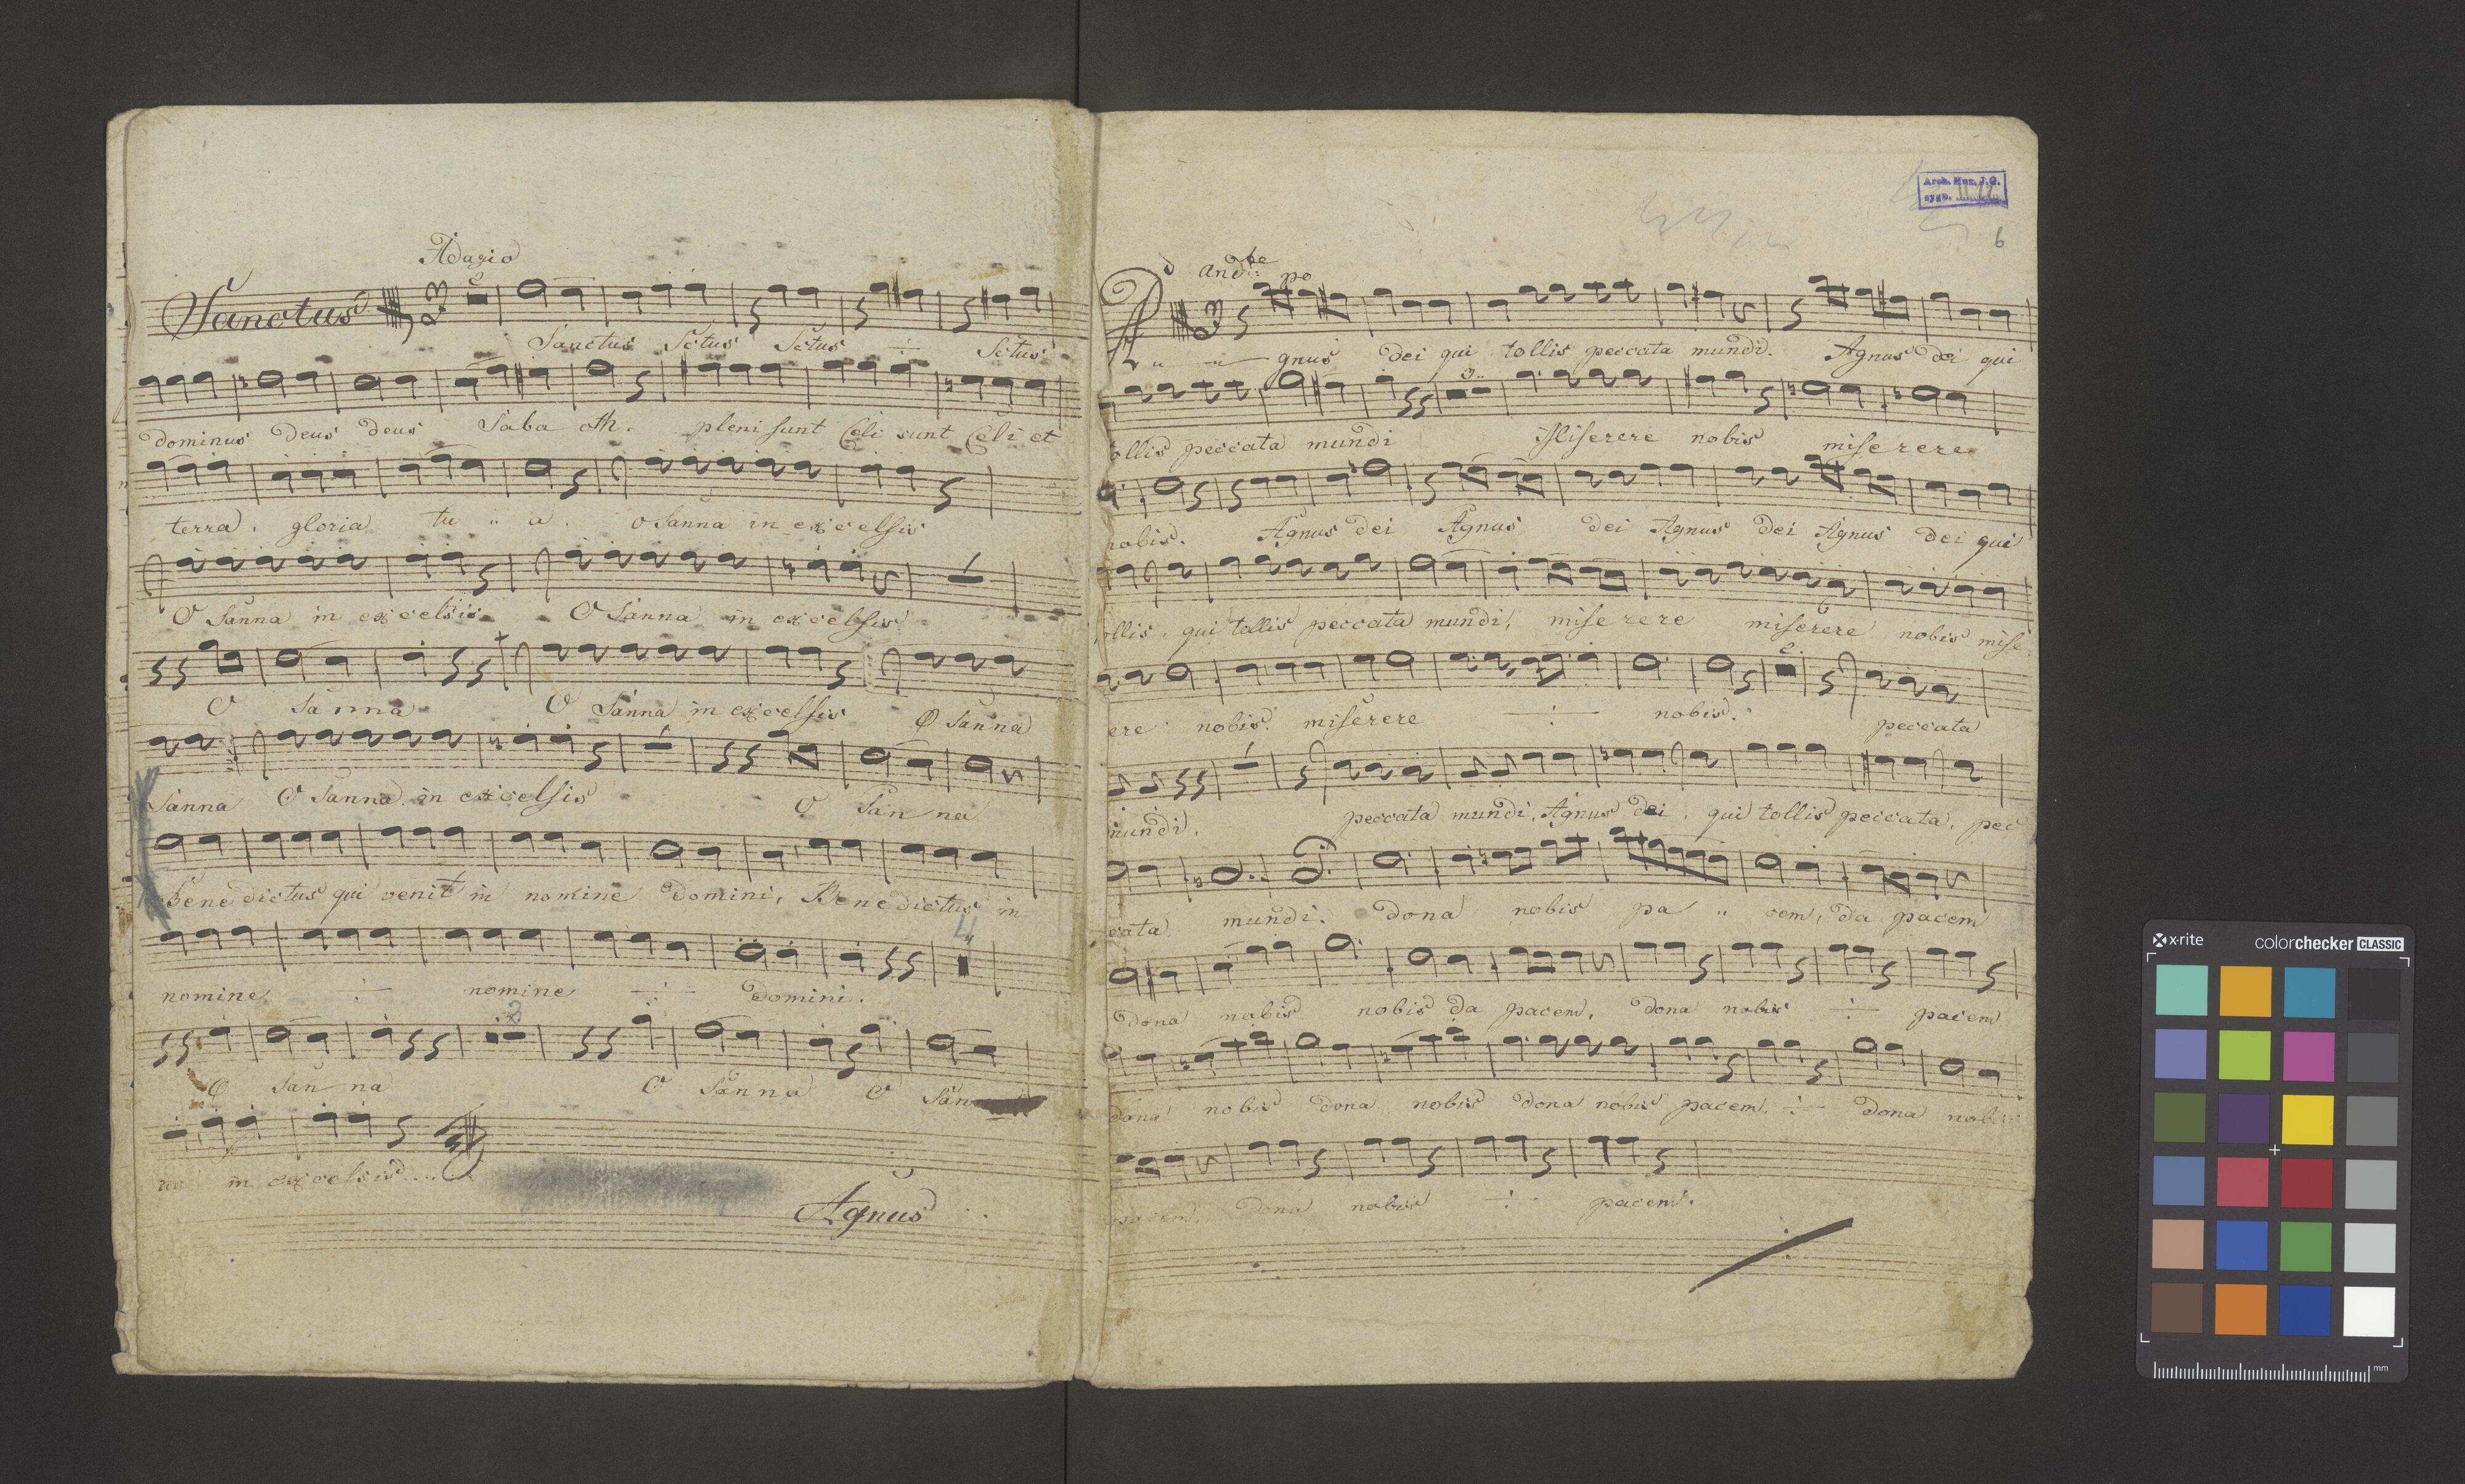 Adagio
Sanctus
2
Sanctus Sctus Sctus ÷ Sctus
dominus Deus deus Saba oth. pleni sunt Celi sunt Celi et
terra. gloria tu " a. o Sanna in excelsis
O Sanna in excelsis O Sanna in excelsis
O Sanna O Sanna in excelsis O Sanna
Sanna O Sanna in excelsis O San na
Bene dictus qui venit in nomine Domini, Benedictus in
4
nomine ÷ nomine ÷ Domini.
3
O San na O Sanna O San
na in excelsis....
Agnus
Arch. Muz. J.G.
sygn.
6
Andte po
A " - gnus Dei qui tollis peccata mundi. Agnus Dei qui
3
ollis peccata mundi Miserere nobis miserere
nobis. Agnus Dei Agnus dei Agnus Dei Agnus Dei qui
ollis, qui tollis peccata mundi, miserere miserere nobis mise
2
ere nobis. miserere ÷ nobis. peccata
mundi. peccata mundi, Agnus Dei, qui tollis peccata, pec
cata mundi. dona nobis pa " cem, da pacem
Dona nobis nobis da pacem, dona nobis ÷ pacem
dona nobis dona nobis dona nobis pacem. ÷ dona nobis
pacem, Dona nobis ÷ pacem.
x-rite colorchecker CLASSIC
mm